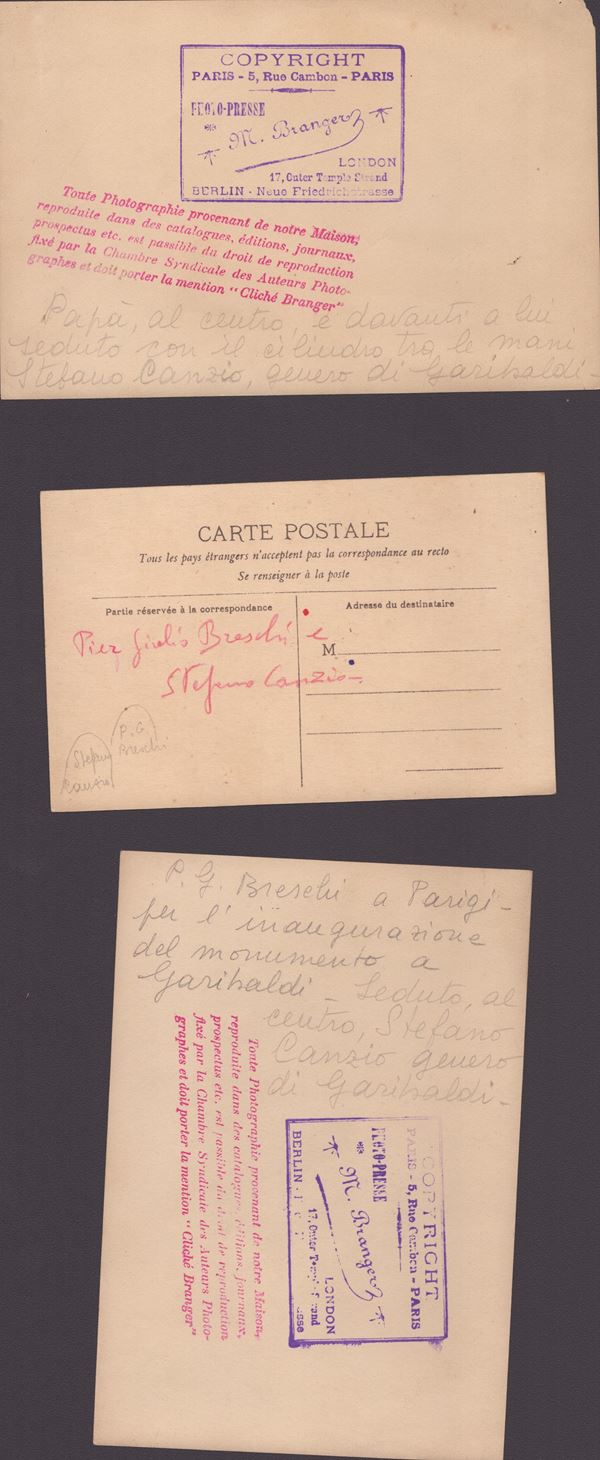 COPYRIGHT
PARIS - 5, Rue Cambon - PARIS
PHOTO-PRESSE
M. Branger
LONDON
17, Outer Temple Strand
BERLIN - Neue Friedrichstrasse
Toute Photographie provenant de notre Maison,
reproduite dans des catalogues, éditions, journaux,
prospectus etc. est passible du droit de reproduction
fixé par la Chambre Syndicale des Auteurs Photo-
graphes et doit porter la mention "Cliché Branger"
Papà, al centro, e davanti a lui
seduto con il cilindro tra le mani
Stefano Canzio, genero di Garibaldi -
CARTE POSTALE
Tous les pays étrangers n'acceptent pas la correspondance au recto
Se renseigner à la poste
Partie réservée à la correspondance
Adresse du destinataire
Pier Giulio Breschi e
M
Stefano Canzio -
P. G.
Breschi
Stefano
Canzio
P. G. Breschi a Parigi -
per l'inaugurazione
del monumento a
Garibaldi - Seduto, al
centro, Stefano
Canzio genero
di Garibaldi -
Toute Photographie provenant de notre Maison,
reproduite dans des catalogues, éditions, journaux,
prospectus etc. est passible du droit de reproduction
fixé par la Chambre Syndicale des Auteurs Photo-
graphes et doit porter la mention "Cliché Branger"
COPYRIGHT
PARIS - 5, Rue Cambon - PARIS
PHOTO-PRESSE
M. Branger
LONDON
17, Outer Temple Strand
BERLIN